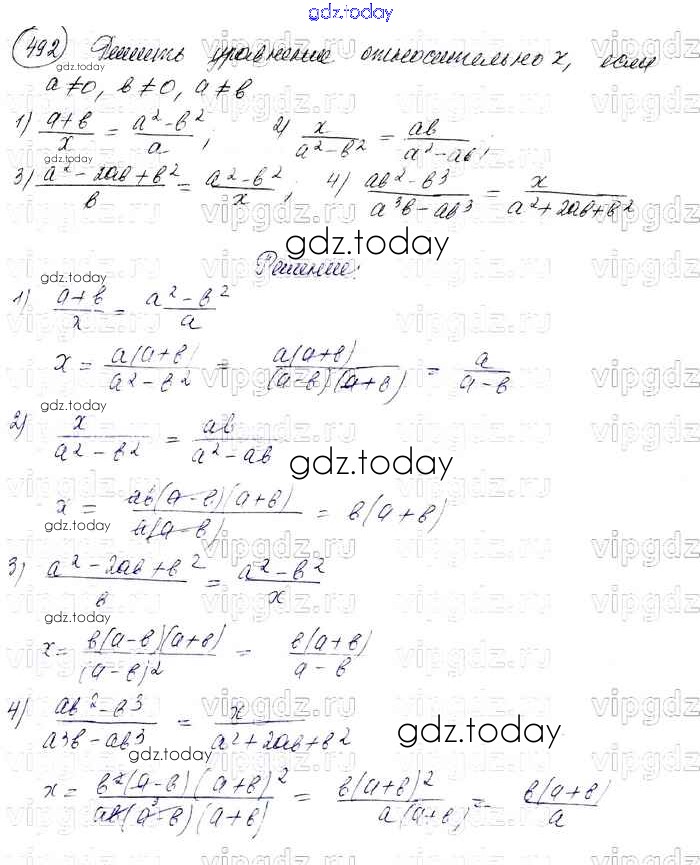 gdz.today
492 Решить уравнение относительно x, если
a≠0, b≠0, a≠b
1) (a+b)/x = (a²-b²)/a; 2) x/(a²-b²) = ab/(a²-ab);
3) (a²-2ab+b²)/b = (a²-b²)/x; 4) (ab²-b³)/(a³b-ab³) = x/(a²+2ab+b²)
gdz.today
Решение:
1) (a+b)/x = (a²-b²)/a
x = a(a+b)/(a²-b²) = a(a+b)/((a-b)(a+b)) = a/(a-b)
2) x/(a²-b²) = ab/(a²-ab)
gdz.today
x = ab(a-b)(a+b)/(a(a-b)) = b(a+b)
3) (a²-2ab+b²)/b = (a²-b²)/x
x = b(a-b)(a+b)/(a-b)² = b(a+b)/(a-b)
4) (ab²-b³)/(a³b-ab³) = x/(a²+2ab+b²)
gdz.today
x = b²(a-b)(a+b)²/(ab(a-b)(a+b)) = b(a+b)²/(a(a+b)) = b(a+b)/a